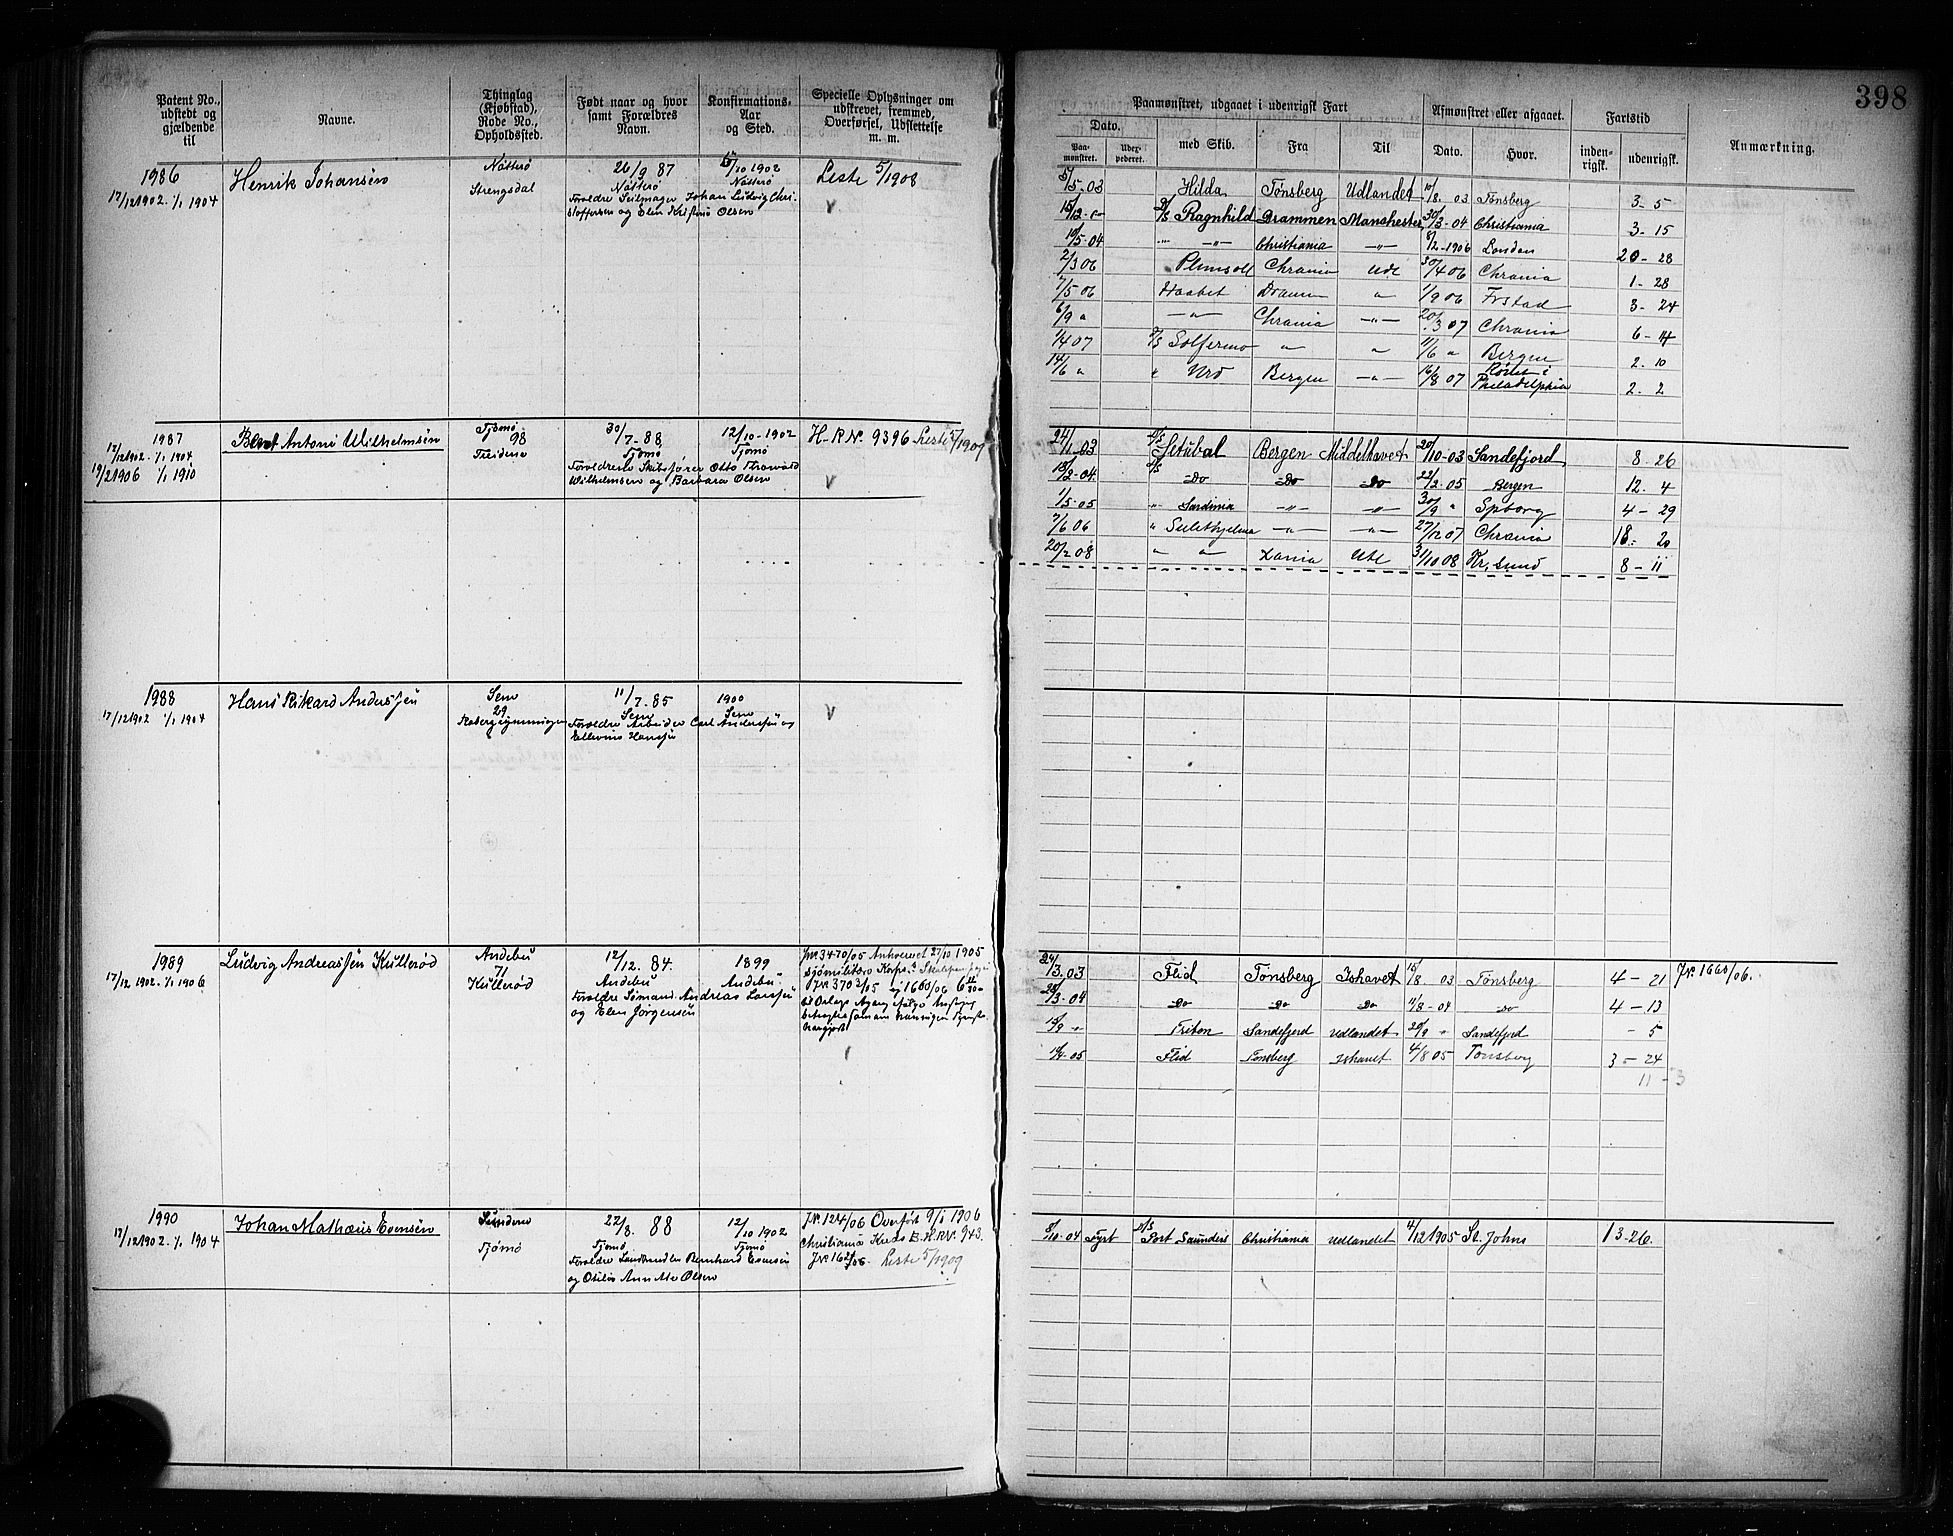 398
Patent No., udstedt og gjældende til
Navne.
Thinglag (Kjøbstad), Rode No., Opholdssted.
Født naar og hvor samt Forældres Navn.
Konfirmations-Aar og Sted.
Specielle Oplysninger om udskrevet, fremmed, Overførsel, Udslettelse m. m.
Paamønstret, udgaaet i udenrigsk Fart
Afmønstret eller afgaaet.
Fartstid
Anmærkning.
Dato.
Paa-mønstret.
med Skib.
Fra
Til
Dato.
Hvor.
inden-rigsk.
udenrigsk.
1986
17/12 1902. 1/1 1904
Henrik Johansen
Nøtterø
Strengsdal
26/9 87
Nøtterø
Forældre Seilmager Johan Ludvig Chri-
stoffersen og Elen Kristine Olsen
/10 1902
Nøtterø
Liste 5/1908
5/5-03 Hilda Tønsberg Udlandet 10/8 03 Tønsberg 3-5
15/12 - D/S Ragnhild Drammen Manchester 30/3-04 Christiania 3-15
10/5-04 " -"- Christiania -"- 8/2-1906 London 20-28
2/3 06 Plimsoll Chrania Udl 30/4 06 Chrania 1-28
7/5 06 Haabet Dramn " 1/9 06 Frstad 3-24
6/9 " -"- Chrania -"- 20/3 07 Chrania 6-14
1/4 07 D/S Solferino " " 11/6 " Bergen 2.10
14/6 " " Urd Bergen -"- 16/8 07 Philadelphia 2-2
1987
17/12 1902. 1/1 1904
19/2 1906 1/1 1910
Bernt Antoni Wilhelmsen
Tjømø
98
30/7-88
Tjømø
Forældre Skibsfører Otto Thorvald
Wilhelmsen og Barbara Olsen
12/10-1902
Tjømø
H-R No. 9396 Liste 5/1909
24/1-03 D/S Setubal Bergen Middelhavet 20/10-03 Sandefjord 8-26
18/2-04 D/S Do Do Do 22/2-05 Bergen 12.4
1/5-05 " Sardinia -"- -"- 30/9 " Spborg 4-29
7/6 06 " Sulitelma -"- -"- 27/12 07 Chrania 18-20
20/2 08 " " Xania Udl 31/10 08 Kr. sund 8-11
1988
17/12 1902 1/1 1904
Hans Rikard Anderssen
Sem
29
11/7-85
Sem
Forældre Arbeider Carl Anderssen og
Ellevine Hanssen
1900
Sem
1989
17/12 1902. 1/1 1906
Ludvig Andreassen Kullerød
Andebu
71
Kullerød
12/12. 84.
Andebu
Forældre Sømand Andreas Larssen
og Elen Jørgensen
1899
Andebu
J.No. 3470/05 27/10 1905
J.No. 3703/05 1660/06
24/3.03 Flid Tønsberg Ishavet 15/8 03 Tønsberg 4-21 J.No. 1660/06.
28/3-04 Do Do Do 11/8-04 Do 4-13
15/9 - Triton Sandefjord Udlandet 20/9 - Sandefjord -5
05 Flid Tønsberg Ishavet 4/8 05 Tønsberg 3-24
11-3
1990
17/12 1902. 1/1 1904
Johan Mathæus Evensen
Sundene
Tjømø
22/8. 88
Tjømø
Forældre Landhandler Bernhard Evensen
og Otilie Annette Olsen
12/10 1902
Tjømø
J.No. 124/06 Overført 9/1 1906
Christiania Kreds B.H.R.No. 943.
Liste 5/1909
8/10-04 Fyrb D/S Port Saunders Christiania Udlandet 4/12 1905 St. Johns 13-26.